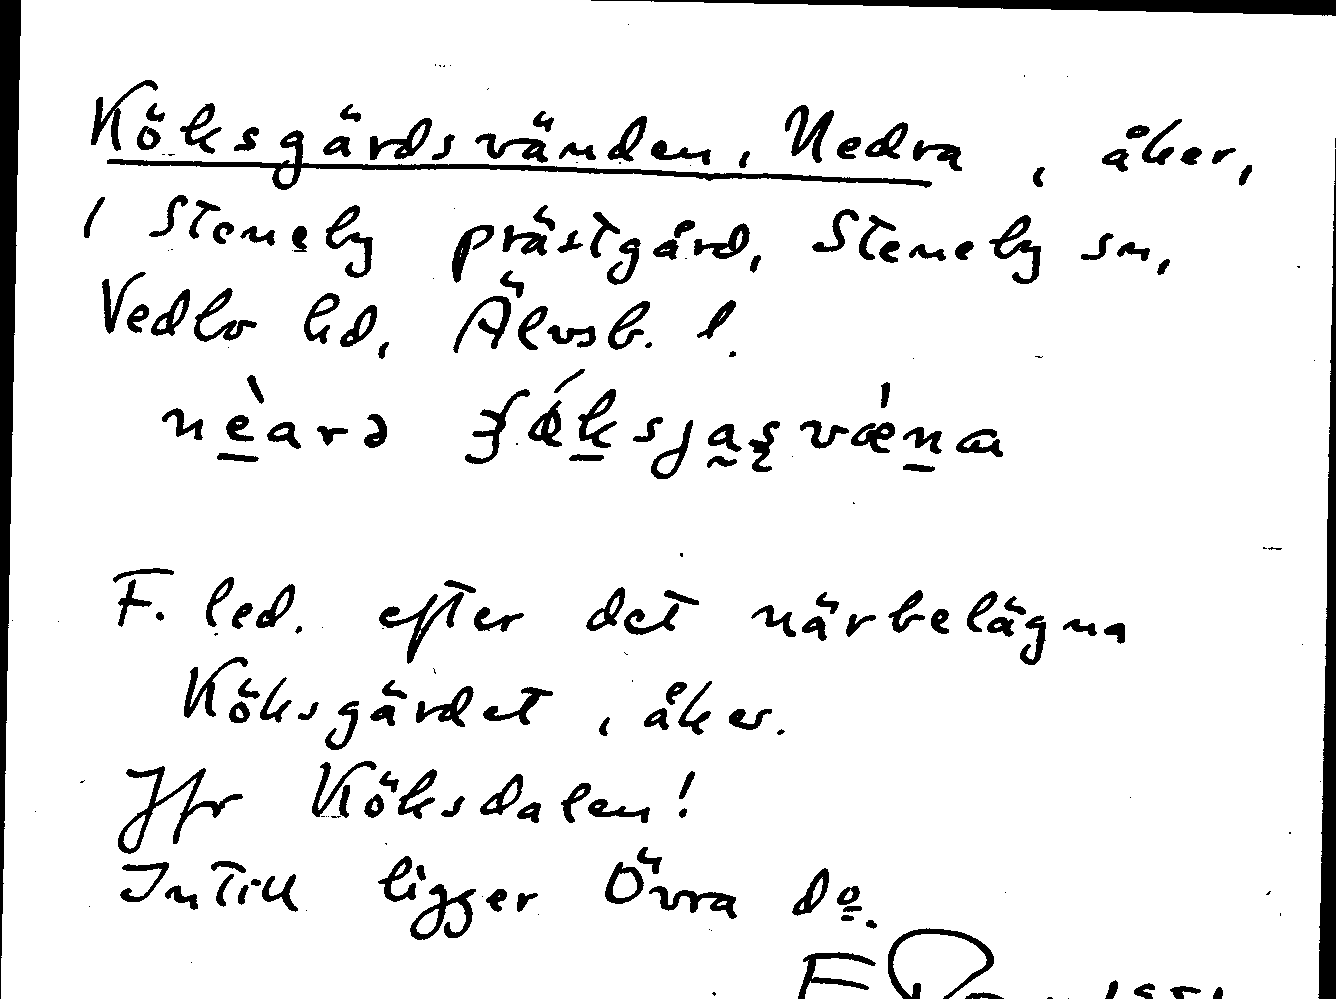 Köksgärdsvänden, Nedra, åker,
i Steneby prästgård, Steneby sn,
Vedbo hd, Älvsb. l.
F. led. efter det närbelägna
Köksgärdet, åker.
Jfr Köksdalen!
Intill ligger Övra do.